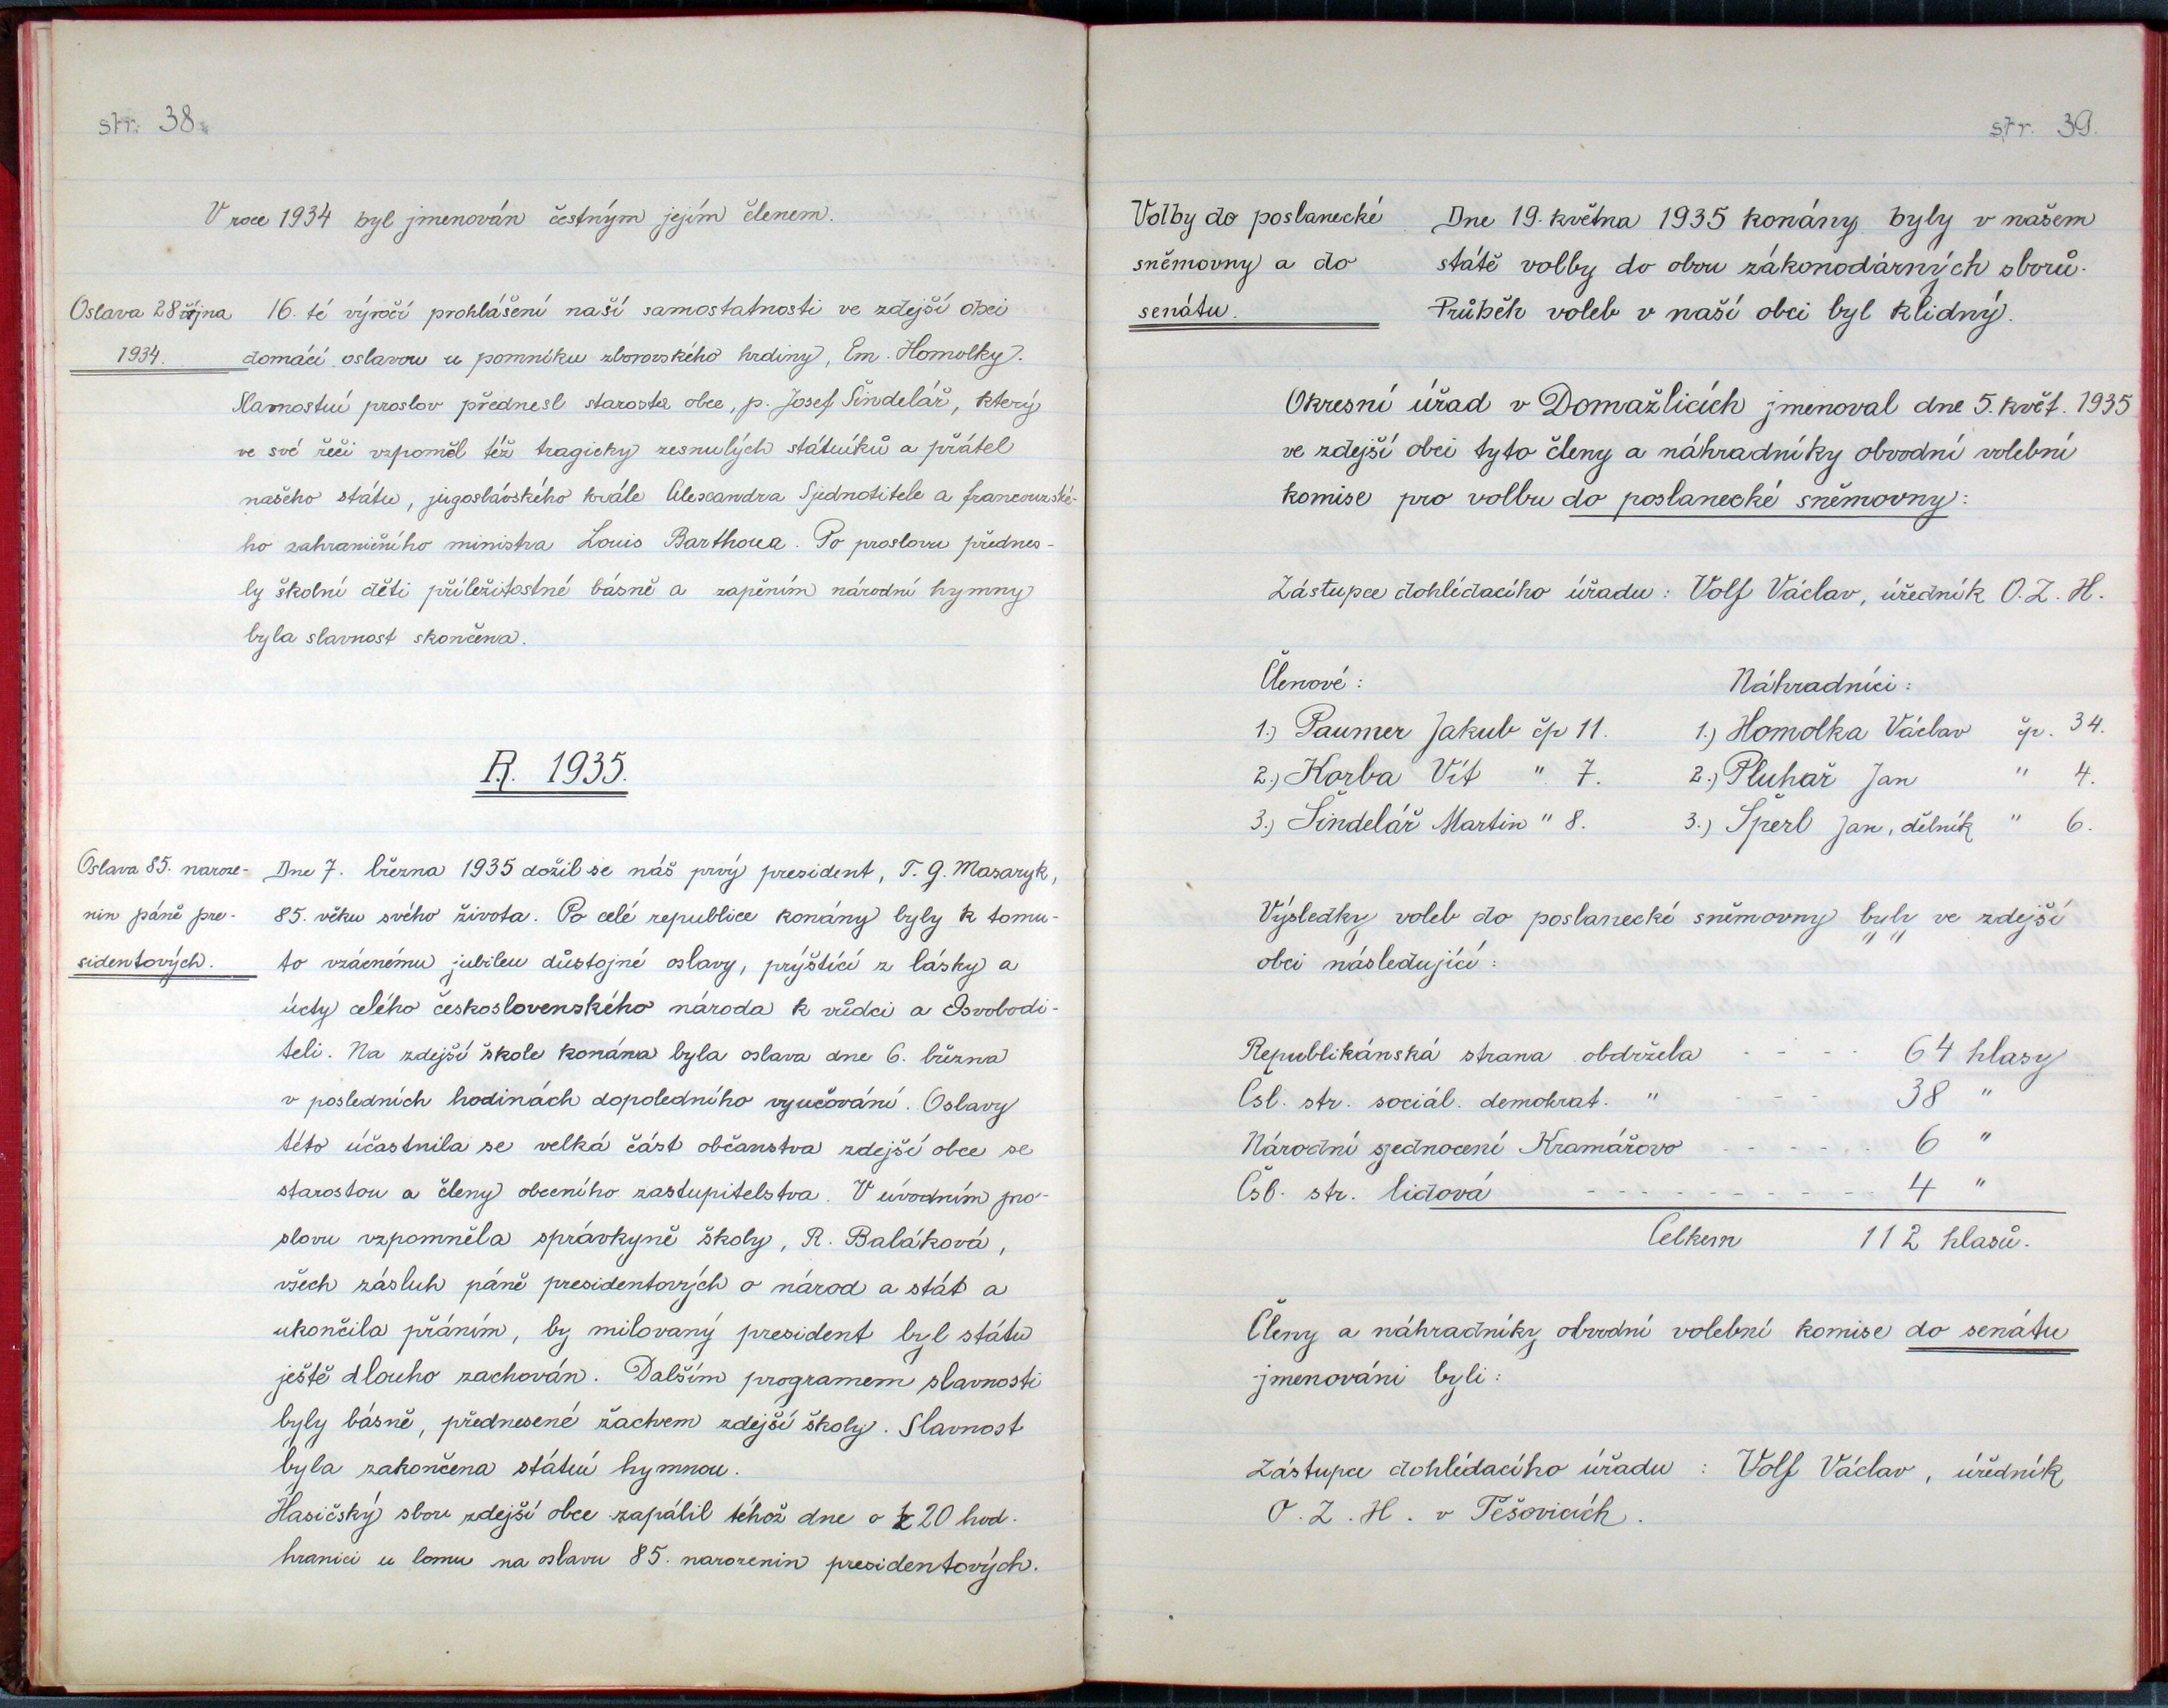 str. 38.
V roce 1934 byl jmenován čestným jejím členem.
Oslava 28 října
1934.
16. té výročí prohlášení naší samostatnosti ve zdejší obci
domácí oslavou u pomníku zborovského hrdiny, Em. Homolky.
Slavnostní proslov přednesl starosta obce, p. Josef Šindelář, který
ve své řeči vzpoměl též tragicky zesnulých státníků a přátel
našeho státu, jugoslávského krále Alexandra Sjednotitele a francouzské-
ho zahraničního ministra Louis Barthoua. Po proslovu přednes-
ly školní děti příležitostné básně a zapěním národní hymny
byla slavnost skončena.
R. 1935.
Oslava 85. naroze-
nin páně pre-
sidentových.
Dne 7. března 1935 dožil se náš prvý president, T. G. Masaryk,
85. věku svého života. Po celé republice konány byly k tomu-
to vzácnému jubileu důstojné oslavy, prýštící z lásky a
úcty celého československého národa k vůdci a Osvobodi-
teli. Na zdejší škole konána byla oslava dne 6. března
v posledních hodinách dopoledního vyučování. Oslavy
této účastnila se velká část občanstva zdejší obce se
starostou a členy obecního zastupitelstva. V úvodním pro-
slovu vzpomněla správkyně školy, R. Baláková,
všech zásluh páně presidentových o národ a stát a
ukončila přáním, by milovaný president byl státu
ještě dlouho zachován. Dalším programem slavnosti
byly básně, přednesené žactvem zdejší školy. Slavnost
byla zakončena státní hymnou.
Hasičský sbor zdejší obce zapálil téhož dne o 20 hod.
hranici u lomu na oslavu 85. narozenin presidentových.
str. 39.
Volby do poslanecké
sněmovny a do
senátu.
Dne 19. května 1935 konány byly v našem
státě volby do obou zákonodárných sborů.
Průběh voleb v naší obci byl klidný.
Okresní úřad v Domažlicích jmenoval dne 5. květ. 1935
ve zdejší obci tyto členy a náhradníky obvodní volební
komise pro volbu do poslanecké sněmovny:
Zástupce dohlédacího úřadu: Volf Václav, úředník O. Z. H.
Členové: Náhradníci:
1.) Paumer Jakub čp 11. 1.) Homolka Václav čp. 34.
2.) Korba Vít " 7. 2.) Pluhař Jan " 4.
3.) Šindelář Martin " 8. 3.) Šperl Jan, dělník " 6.
Výsledky voleb do poslanecké sněmovny byly ve zdejší
obci následující:
Republikánská strana obdržela - - - - 64 hlasy
Čsl. str. sociál. demokrat. " - - - 38 "
Národní sjednocení Kramářovo - - - - - 6 "
Čsl. str. lidová - - - - - - - - - - - 4 "
Celkem 112 hlasů.
Členy a náhradníky obvodní volební komise do senátu
jmenováni byli:
Zástupce dohlédacího úřadu : Volf Václav, úředník
O. Z. H. v Těšovicích.